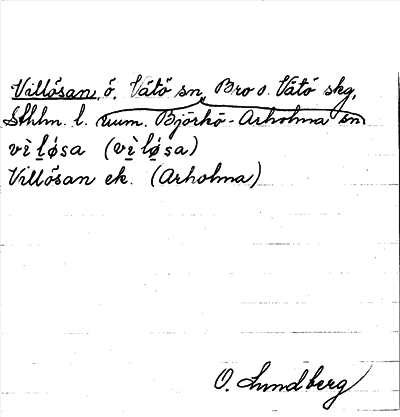 Villösan, ö, Vätö sn, Bro o. Vätö skg,
Sthlm. l. num. Björkö-Arholma sn
vì̯ ḷǿsa (vì̯ ḷǿ̣sa)
Villösan ek. (Arholma)
O. Lundberg